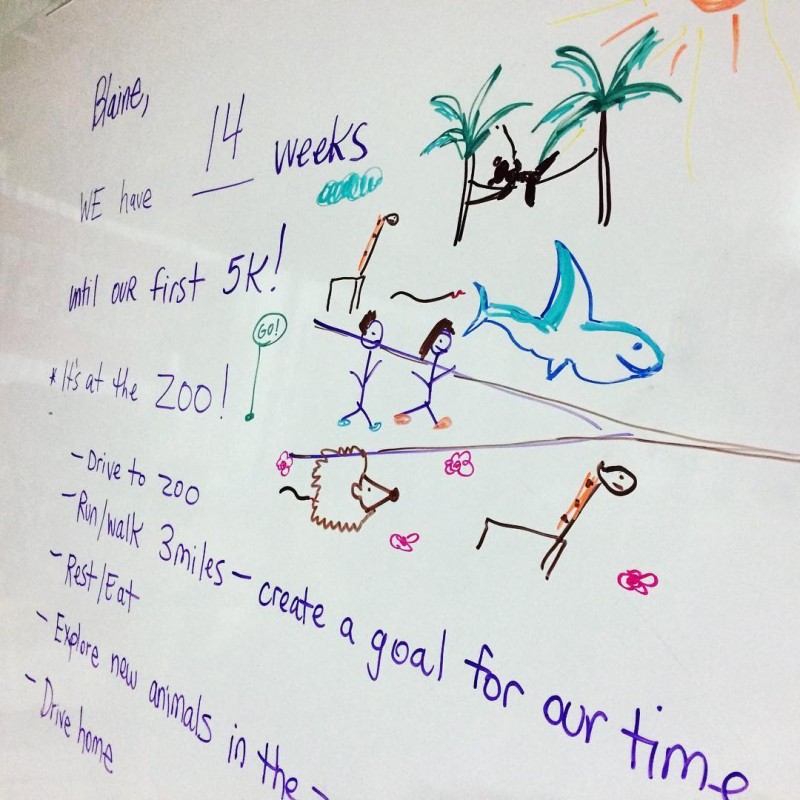 Blaine,
WE have 14 weeks
until our first 5K!
GO!
* It's at the ZOO!
- Drive to zoo
- Run/walk 3miles - create a goal for our time
- Rest/Eat
- Explore new animals in the -
- Drive home